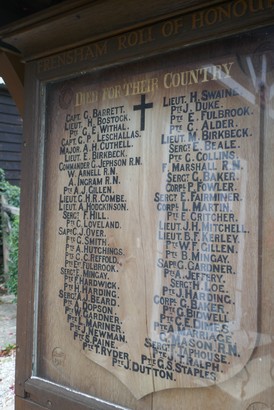 FRENSHAM ROLL OF HONOUR
DIED FOR THEIR COUNTRY
CAPT. G. BARRETT.
LIEUT. H. BOSTOCK.
PTE C. E. WITHAL.
CAPT. G. P. LESCHALLAS.
MAJOR. A. H. CUTHELL.
LIEUT. E. BIRKBECK.
COMMANDER G. JEPHSON R.N.
W. ARNELL R.N.
A. INGRAM R.N.
PTE A. J. GILLEN.
LIEUT. C. H. R. COMBE.
LIEUT. A. HODGKINSON.
SERGT F. HILL.
PTE C. LOVELAND.
SAPR C. J. OVER.
PTE G. SMITH.
PTE A. HUTCHINGS.
PTE C. C. REFFOLD.
PTE E. FULBROOK.
SERGT E. MINGAY.
PTE F. HARDWICK.
PTE H. HARDING.
SERGT A. J. BEARD.
PTE A. DOPSON.
PTE W. GARDNER.
PTE L. MARINER.
PTE J. NEWMAN.
PTE S. PAINE.
PTE T. RYDER.
PTE J. DUTTON.
LIEUT. H. SWAINE.
PTE J. DUKE.
PTE E. FULBROOK.
PTE C. ALDER.
LIEUT. M. BIRKBECK.
SERGT E. BEALE.
PTE C. COLLINS.
F. MARSHALL R.N.
SERGT C. BAKER.
CORPL P. FOWLER.
SERGT E. FAIRMINER.
CORPL L. MARTIN.
PTE E. CRITCHER.
LIEUT. J. H. MITCHELL.
LIEUT. E. P. KERLEY.
PTE W. F. GILLEN.
PTE B. MINGAY.
SAPR C. GARDNER.
PTE A. JEFFERY.
SERGT H. LOE.
PTE J. HARDING.
CORPL C. POSNER.
PTE G. BIDWELL.
PTE C. E. DIMES.
G. MASON R.N.
SERGT W. TAPHOUSE.
PTE W. J. T. RALPH.
PTE G. S. STAPLES.